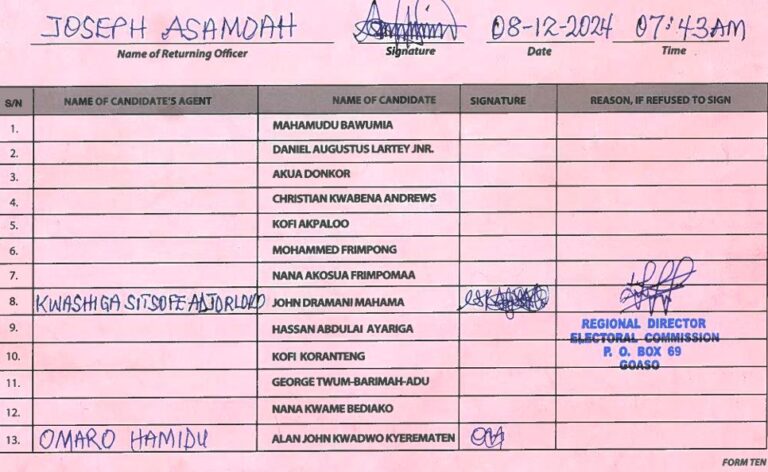 JOSEPH ASAMOAH 08-12-2024 07:43AM
Name of Returning Officer Signature Date Time
S/N NAME OF CANDIDATE'S AGENT NAME OF CANDIDATE SIGNATURE REASON, IF REFUSED TO SIGN
1. MAHAMUDU BAWUMIA
2. DANIEL AUGUSTUS LARTEY JNR.
3. AKUA DONKOR
4. CHRISTIAN KWABENA ANDREWS
5. KOFI AKPALOO
6. MOHAMMED FRIMPONG
7. NANA AKOSUA FRIMPOMAA
8. KWASHIGA SITSOFE ANJORLOKO JOHN DRAMANI MAHAMA
9. HASSAN ABDULAI AYARIGA
REGIONAL DIRECTOR
ELECTORAL COMMISSION
P. O. BOX 69
GOASO
10. KOFI KORANTENG
11. GEORGE TWUM-BARIMAH-ADU
12. NANA KWAME BEDIAKO
13. OMARO HAMIDU ALAN JOHN KWADWO KYEREMATEN
FORM TEN